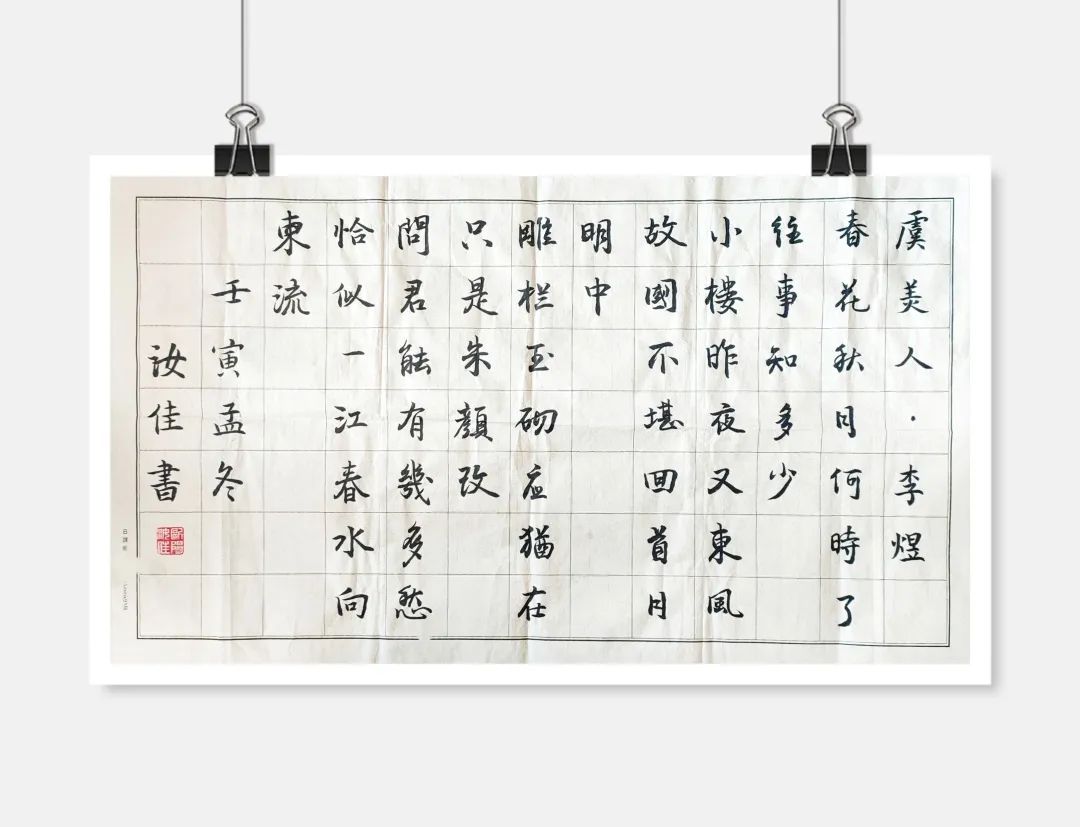 虞美人·李煜
春花秋月何時了
往事知多少
小樓昨夜又東風
故國不堪回首月
明中
雕栏玉砌应猶在
只是朱顔改
問君能有幾多愁
恰似一江春水向
東流
壬寅孟冬
汝佳書